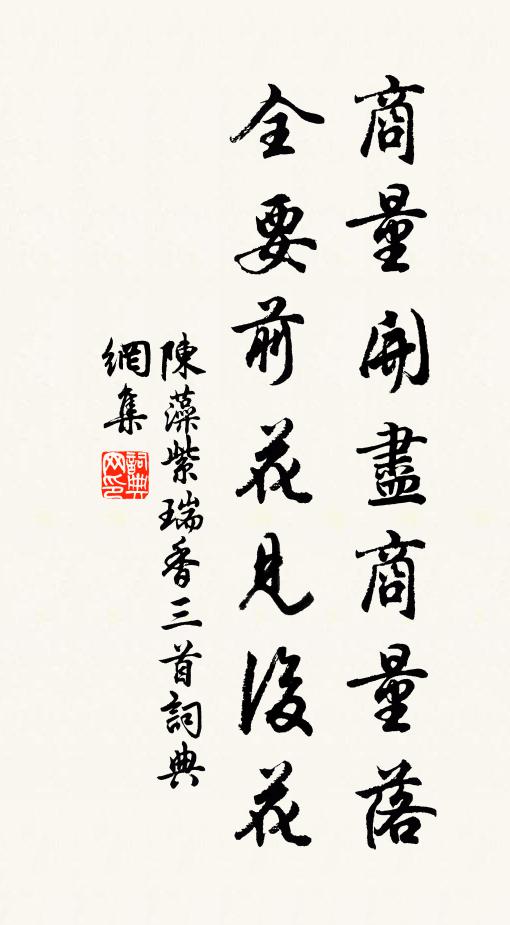 商量開盡商量落
全要前花見後花
陳藻紫瑞香三首詞典
網集
詞典
网印